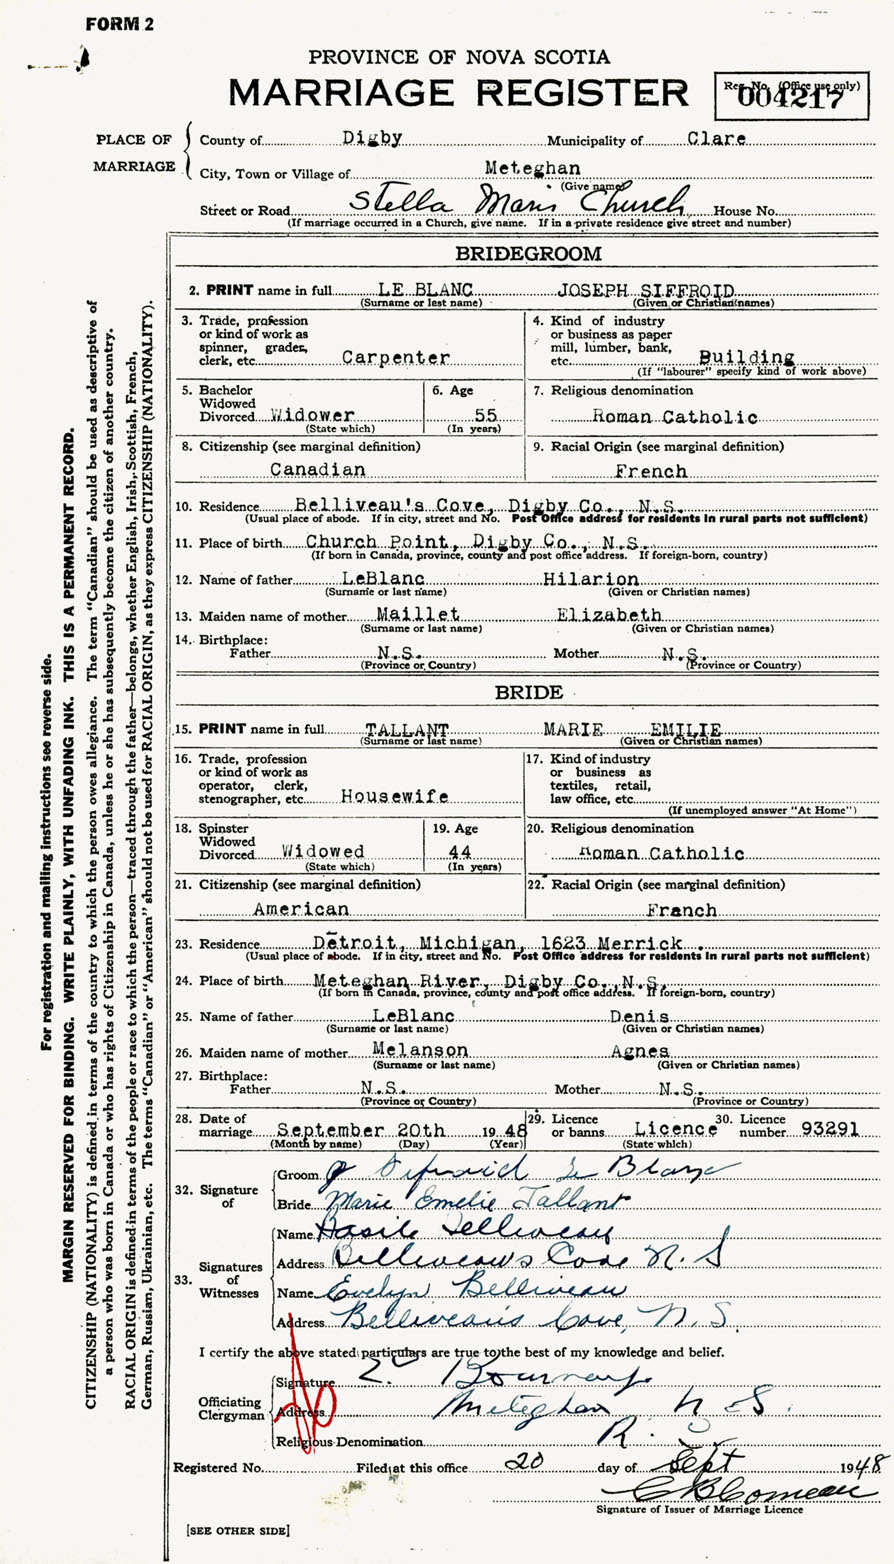 FORM 2
PROVINCE OF NOVA SCOTIA
MARRIAGE REGISTER
Reg. No. (Office use only)
004217
PLACE OF MARRIAGE
County of Digby Municipality of Clare
City, Town or Village of Meteghan
(Give name)
Street or Road Stella Maris Church House No.
(If marriage occurred in a Church, give name. If in a private residence give street and number)
BRIDEGROOM
2. PRINT name in full LE BLANC JOSEPH SIFFROID
(Surname or last name) (Given or Christian names)
3. Trade, profession or kind of work as spinner, grader, clerk, etc. Carpenter
4. Kind of industry or business as paper mill, lumber, bank, etc. Building
(If "labourer" specify kind of work above)
5. Bachelor Widowed Divorced Widower
(State which)
6. Age 55
(In years)
7. Religious denomination
Roman Catholic
8. Citizenship (see marginal definition)
Canadian
9. Racial Origin (see marginal definition)
French
10. Residence Belliveau's Cove, Digby Co., N.S.
(Usual place of abode. If in city, street and No. Post Office address for residents in rural parts not sufficient)
11. Place of birth Church Point, Digby Co., N.S.
(If born in Canada, province, county and post office address. If foreign-born, country)
12. Name of father LeBlanc Hilarion
(Surname or last name) (Given or Christian names)
13. Maiden name of mother Maillet Elizabeth
(Surname or last name) (Given or Christian names)
14. Birthplace:
Father N.S. Mother N.S.
(Province or Country) (Province or Country)
BRIDE
15. PRINT name in full TALLANT MARIE EMILIE
(Surname or last name) (Given or Christian names)
16. Trade, profession or kind of work as operator, clerk, stenographer, etc. Housewife
17. Kind of industry or business as textiles, retail, law office, etc.
(If unemployed answer "At Home")
18. Spinster Widowed Divorced Widowed
(State which)
19. Age 44
(In years)
20. Religious denomination
Roman Catholic
21. Citizenship (see marginal definition)
American
22. Racial Origin (see marginal definition)
Franch
23. Residence Detroit, Michigan, 1623 Merrick .
(Usual place of abode. If in city, street and No. Post Office address for residents in rural parts not sufficient)
24. Place of birth Meteghan River, Digby Co., N.S.
(If born in Canada, province, county and post office address. If foreign-born, country)
25. Name of father LeBlanc Denis
(Surname or last name) (Given or Christian names)
26. Maiden name of mother Melanson Agnes
(Surname or last name) (Given or Christian names)
27. Birthplace:
Father N.S. Mother N.S.
(Province or Country) (Province or Country)
28. Date of marriage September 20th 1948
(Month by name) (Day) (Year)
29. Licence or banns Licence
(State which)
30. Licence number 93291
32. Signature of
Groom J Sifroid Le Blanc
Bride Marie Emelie Tallant
33. Signatures of Witnesses
Name Basile Belliveau
Address Belliveau's Cove N.S
Name Evelyn Belliveau
Address Belliveau's Cove, N.S.
I certify the above stated particulars are true to the best of my knowledge and belief.
Officiating Clergyman
Signature
Address Meteghan N.S.
Religious Denomination R.
Registered No. Filed at this office 20 day of Sept 1948
Signature of Issuer of Marriage Licence
[SEE OTHER SIDE]
For registration and mailing instructions see reverse side.
MARGIN RESERVED FOR BINDING. WRITE PLAINLY, WITH UNFADING INK. THIS IS A PERMANENT RECORD.
CITIZENSHIP (NATIONALITY) is defined in terms of the country to which the person owes allegiance. The term "Canadian" should be used as descriptive of
a person who was born in Canada or who has rights of Citizenship in Canada, unless he or she has subsequently become the citizen of another country.
RACIAL ORIGIN is defined in terms of the people or race to which the person—traced through the father—belongs, whether English, Irish, Scottish, French,
German, Russian, Ukrainian, etc. The terms "Canadian" or "American" should not be used for RACIAL ORIGIN, as they express CITIZENSHIP (NATIONALITY).